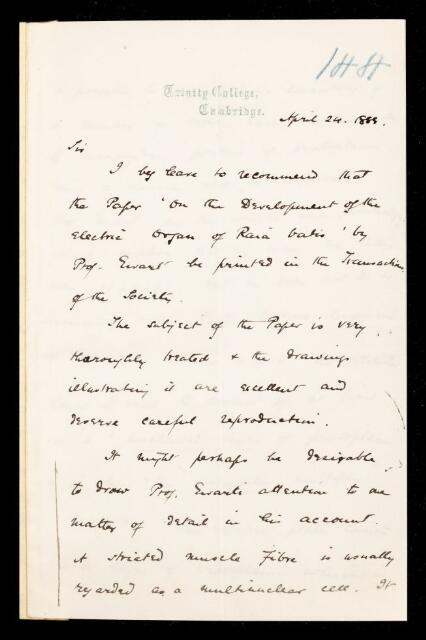 144
Trinity College,
Cambridge.
April 24. 1888.
Sir
I beg leave to recommend that
the Paper 'On the Development of the
Electric Organ of Raia batis' by
Prof. Ewart be printed in the Transactions
of the Society.
The subject of the Paper is very
thoroughly treated & the drawings
illustrating it are excellent and
deserve careful reproduction.
It might perhaps be desirable
to draw Prof. Ewart's attention to one
matter of detail in his account.
A striated muscle fibre is usually
regarded as a multinuclear cell. It